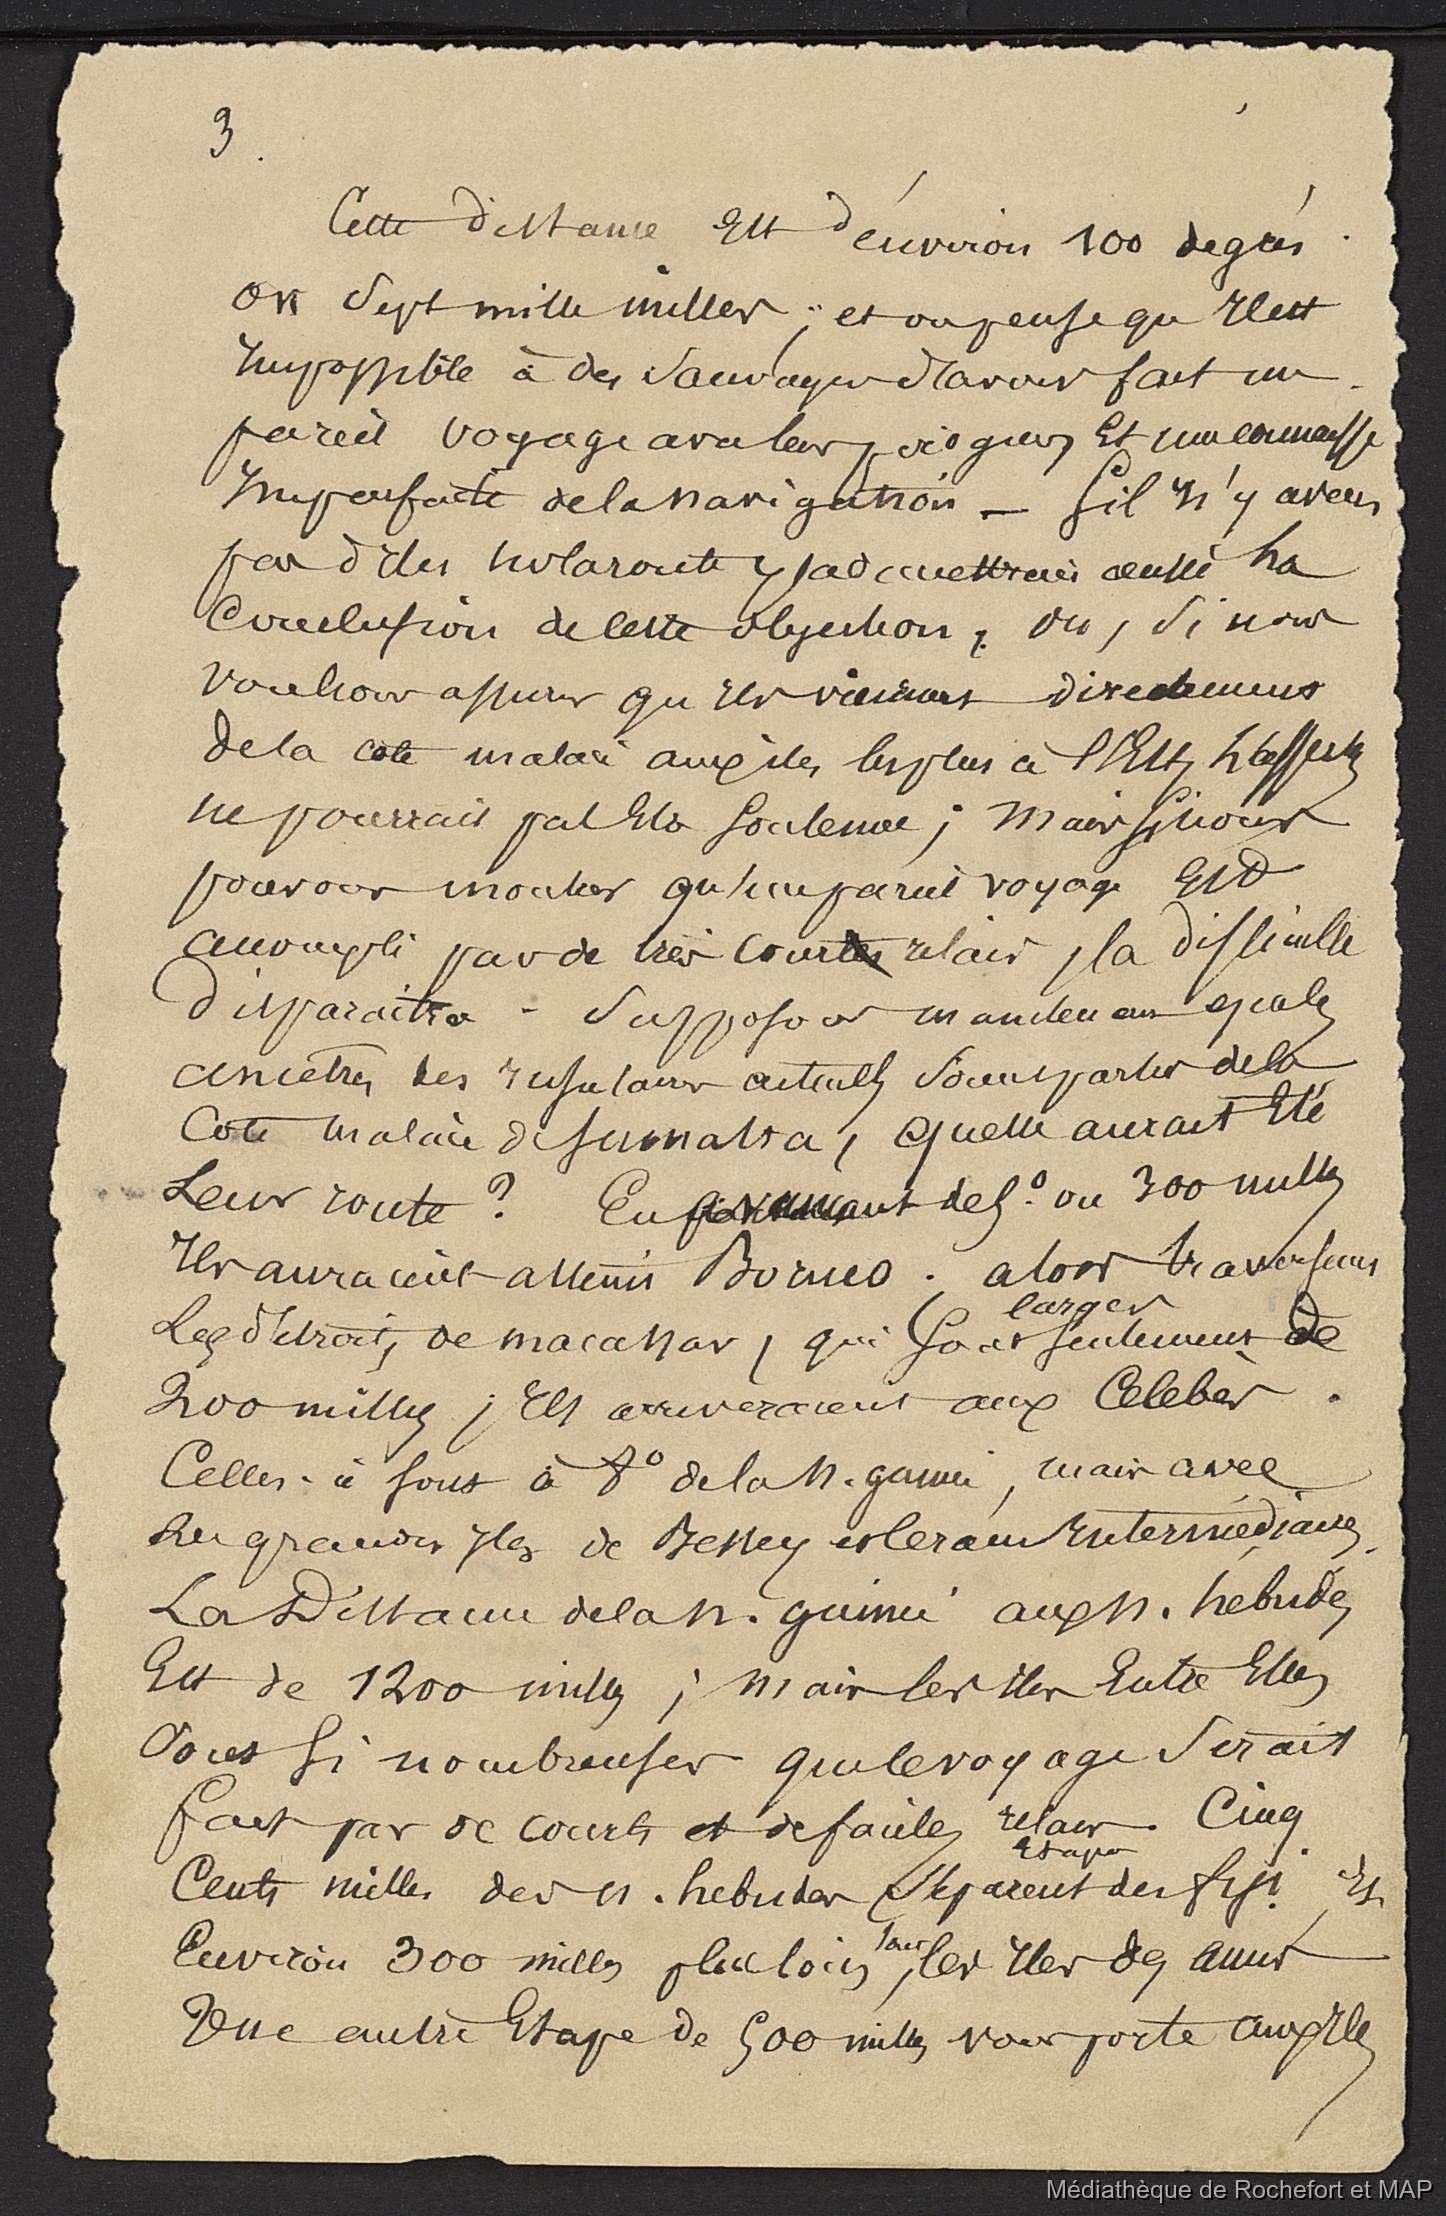 3
Cette distance Est d'environ 100 degrés
ou Sept mille milles ; et on pense qu'Il est
Impossible à des Sauvages d'avoir fait un
pareil voyage avec leurs pirogues Et une connaisse
Imparfaite de la navigation — S'il n'y avait
pas d'Iles sur la route, j'admettrais aussi la
Conclusion de cette objection, ou, Si nous
voulions assurer qu'Ils vinrent directement
de la côte malaie aux iles les plus à l'Est,
ne pourrait pas Etre Soutenue ; Mais Si nous
pouvons montrer qu'un pareil voyage Est
accompli par de très courts relais, la difficulté
disparaitra - Supposons maintenant que les
ancêtres des Insulaires actuels Soient partis de la
Cote malaie de Sumatra, quelle aurait Eté
Leur route ? En de 5.° ou 300 milles
Ils auraient atteint Borneo . alors traversant
Les détroits de macassar, qui Sont seulement de
larges
200 milles ; Ils arriveraient aux Celebès .
Celles-ci sont à 8° de la N. guinée, mais avec
Les grandes Iles de et Ceram Intermédiaires.
La Distance de la N. guinée aux N. hebrides
Est de 1200 milles ; Mais les Iles Entre Elles
Sont Si nombreuses que le voyage Serait
fait par de courts et de faciles relais. Cinq
Etapes
Cents milles des N. hebrides Séparent des fiji. Et
Environ 300 milles plus loin, sont les Iles des amis
Une autre Etape de 500 milles vous porte aux Iles
Médiathèque de Rochefort et MAP